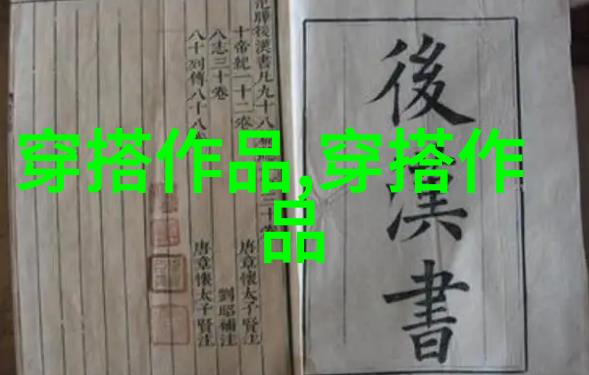 穿搭作品,穿搭作
品
後漢書
後漢書凡九十八
十帝紀一十二卷
唐章懷太子賢注
八志三十卷
劉昭補注
八十列傳八十八
唐章懷太子賢注